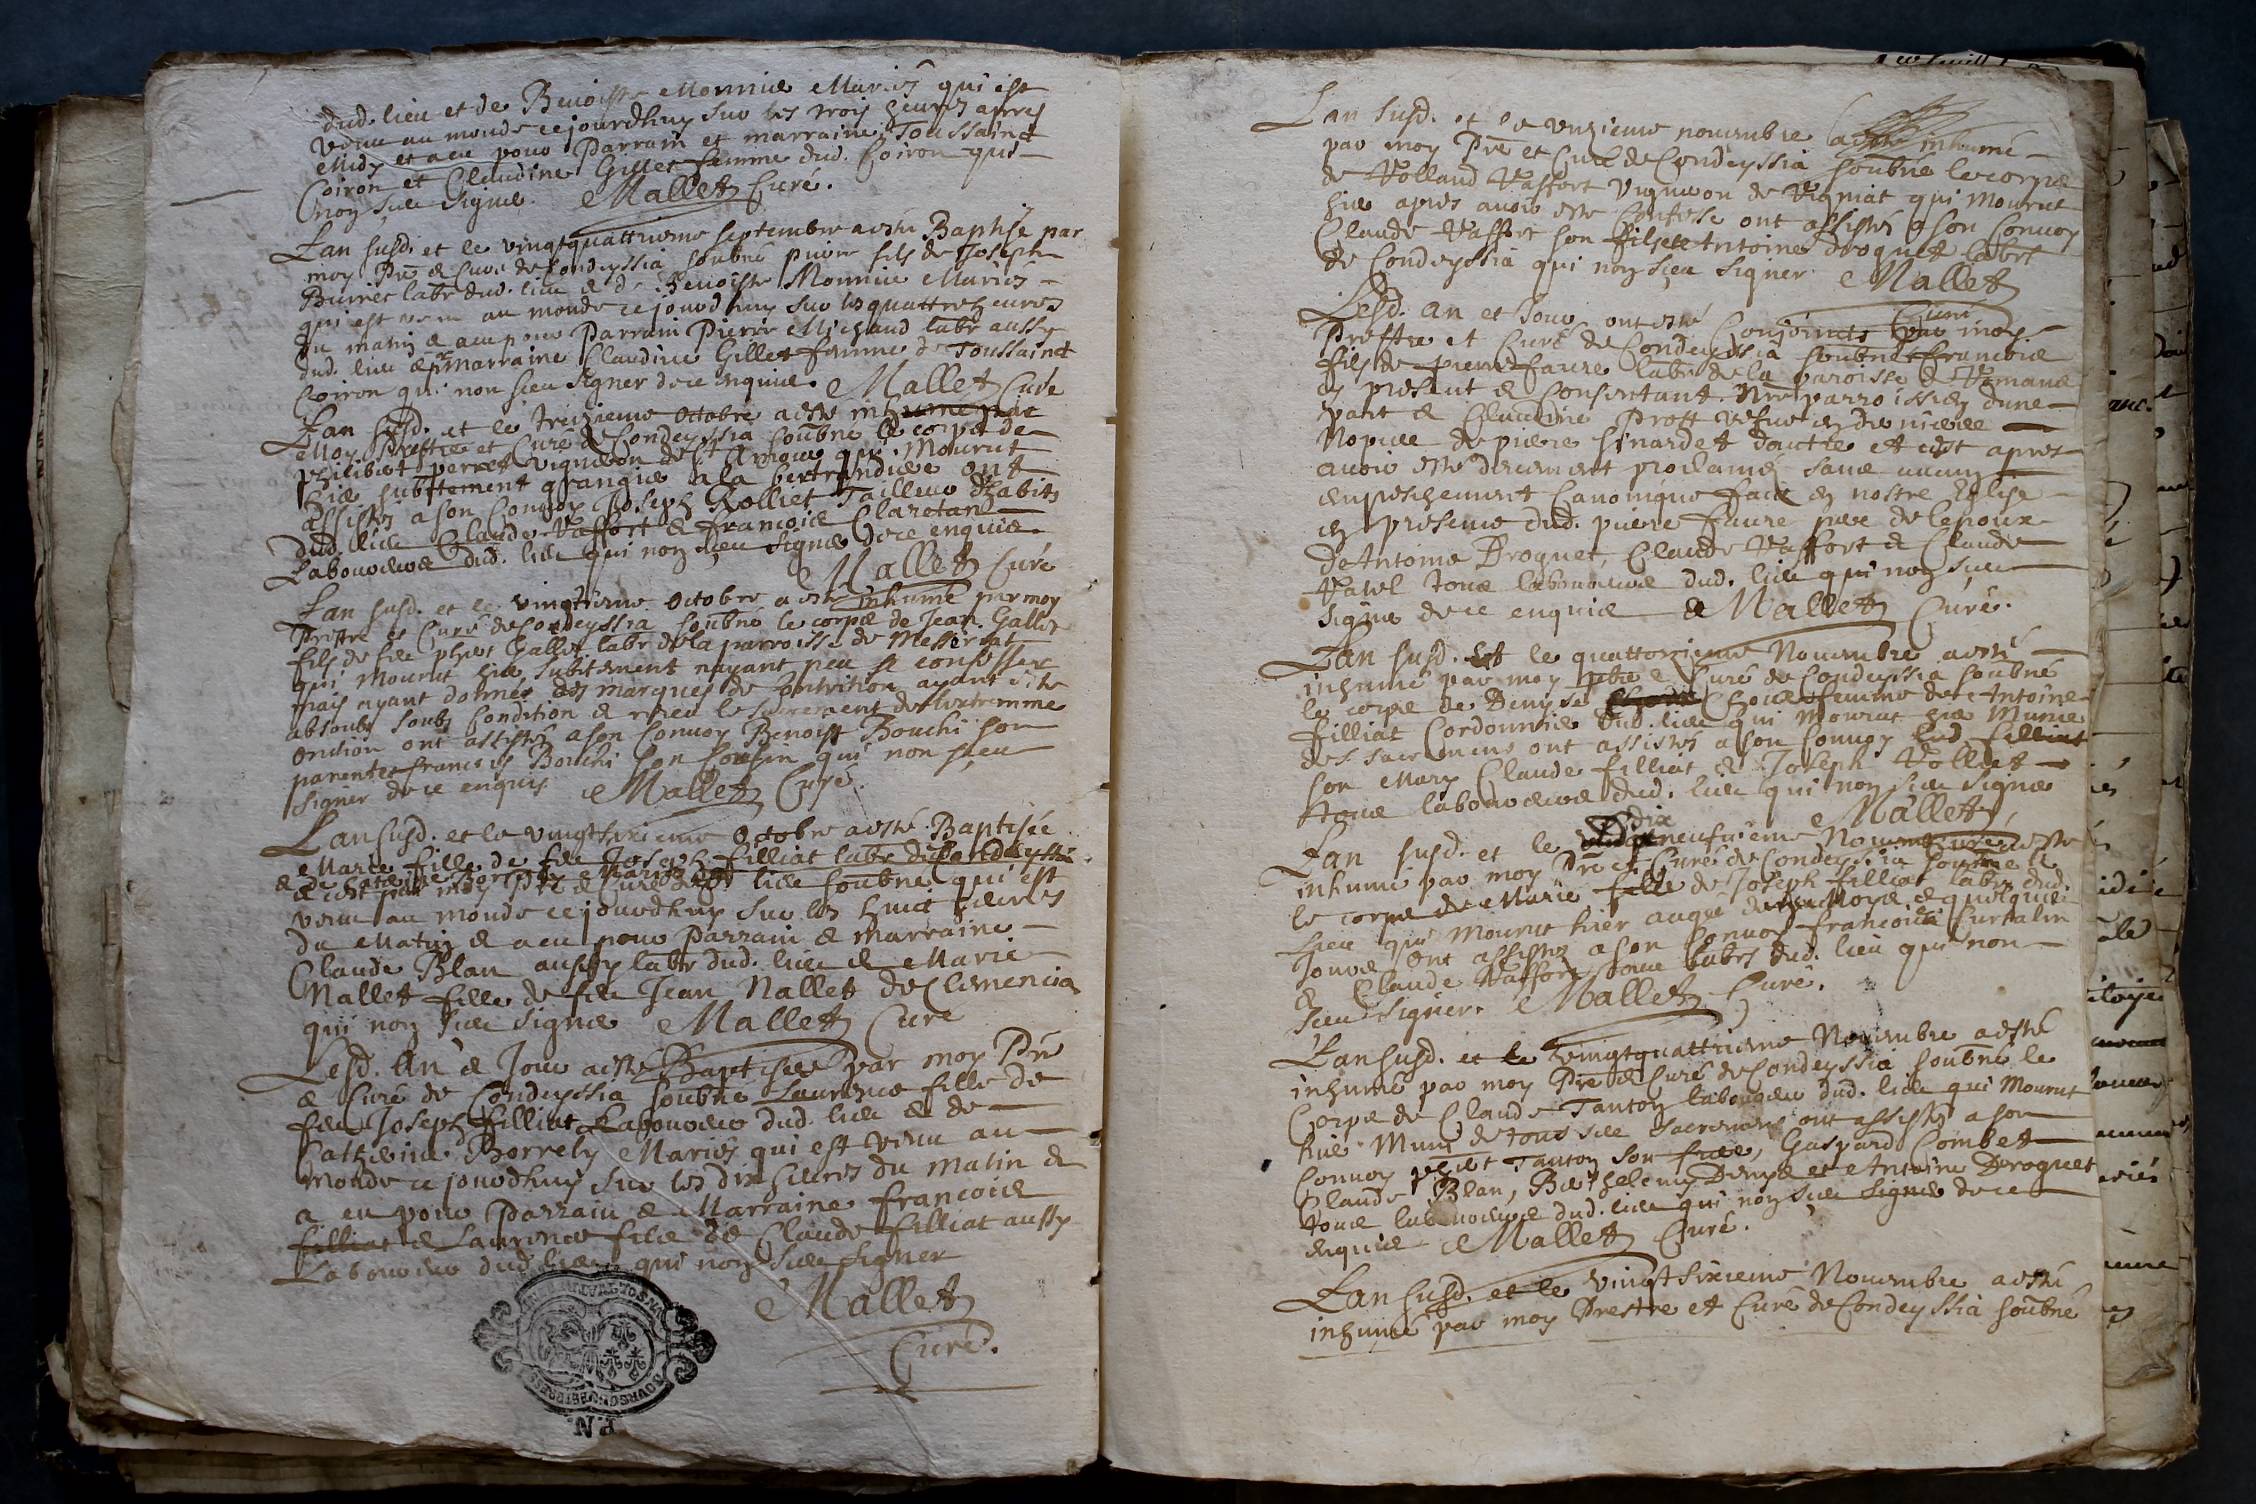 dud. lieu et de Benoiste Monnier Mariés qui est
venu au monde cejourdhuy sur les trois heures apres
Midy et a eu pour Parrain et marraine Toussainct
Coiron et Claudine Gillet femme dud. Coiron qui
non sceu signer. Mallet Curé.
Lan susd. et le vingtquattrieme septembre a esté Baptisé par
moy Pre & Curé de Condeyssia soubné pierre fils de Joseph
Buiret labr dud. lieu & de Benoiste Monnier Mariés
qui est venu au monde cejourdhuy sur les quattre heures
du matin & a eu pour Parrain Pierre Michaud labr aussy
dud. lieu & pr marraine Claudine Gillet femme de Toussainct
Coiron qui non sceu signer de ce enquis. Mallet Curé
Lan susd. et le treizieme Octobre a esté inhumé par
Moy Prestre et Curé de Condeyssia soubné le corps de
philibert perret vigneron de St Amour qui Mourut
hier subittement grangier a la bertrandiere ont
assistés a son Convoy Joseph Rolliet Tailleur dhabits
dud. lieu Claude Vaffort & francois Claretan
Laboureurs dud. lieu qui non sceu signer de ce enquis
Mallet Curé
Lan susd. et le vingtieme Octobre a esté inhumé par moy
Prestre et Curé de Condeyssia soubné le corps de Jean Gallet
fils de feu phert Gallet labr de la parroisse de Messeriat
qui Mourut hier subitement nayant peu se confesser
mais ayant donnés des marques de Contrition ayant esté
absoubs soubs condition & receu le sacrement de lextremme
onction ont assistés a son Convoy Benoist Bouchi son
parent et francois Bouchi son Cousin qui non sceu
signer de ce enquis Mallet Curé.
Lan susd. et le vingtsixieme Octobre a esté Baptisée
Marie fille de feu Joseph filliat labr de Condeyssia
& de Caterine Borrely Mariés
& cest par moy Pre & Curé dud lieu soubné qui est
venu au monde cejourdhuy sur les huict heures
du Matin & a eu pour Parrain & marraine
Claude Blan aussy labr dud. lieu & Marie
Mallet fille de feu Jean Mallet de Clemencia
qui non sceu signer Mallet Curé
Lesd. An & Jour a esté Baptisée par moy Pre
& Curé de Condeyssia soubné Laurence fille de
feu Joseph filliat Laboureur dud. lieu & de
Catherine Borrely Mariés qui est venu au
Monde cejourdhuy sur les dix heures du Matin &
a eu pour Parrain & Marraine francois
filliat & Laurence fille de Claude filliat aussy
Laboureur dud. lieu qui non sceu signer
Mallet
Curé.
P.N.
Lan susd. et le unzieme novembre a esté inhumé
par moy Pre et Curé de Condeyssia soubné le corps
de Rolland Vaffort vigneron de Vigniat qui Mourut
hier apres avoir esté Confessé ont assistés a son Convoy
Claude Vaffort son fils et Antoine Droguet labrs
de Condeyssia qui non sceu signer Mallet
Curé
Lesd. An et Jour ont esté Conjoincts par moy
Prestre et Curé de Condeyssia soubné francois
fils de pierre faure labr de la paroisse de Romans
cy present & Consentant. Nre parroissien dune
part & Claudine Prost vefve en derniere
Nopces de pierre sinardet dautre et cest apres
avoir esté deuement proclamés sans aucun
empeschement Canonique faict en nostre Eglise
en presence dud. pierre faure pere de lepoux
de Antoine Droguet, Claude Vaffort & Claude
Ravel tous laboureurs dud. lieu qui non sceu
signer de ce enquis Mallet Curé.
Lan susd. et le quattorzieme Novembre a esté
inhumé par moy pbre & Curé de Condeyssia soubné
le corps de Denyse Choux femme de Antoine
filliat Cordonnier dud. lieu qui Mourut hier Munie
des sacremens ont assistés a son Convoy led. filliat
son Mary Claude filliat & Joseph Rolliet
tous laboureurs dud. lieu qui non sceu signer
Mallet
Lan susd. et le dix neufvieme Novembre a esté
inhumé par moy Pre et Curé de Condeyssia soubné
le corps de Marie fille de Joseph filliat labr dud.
Lieu qui Mourut hier aagée de un Moys & quelques
Jours ont assistés a son Convoy francois Curtalin
& Claude Vaffort tous labrs dud. lieu qui non
sceu signer. Mallet Curé.
Lan susd. et le vingtquattrieme Novembre a esté
inhumé par moy Pre & Curé de Condeyssia soubné le
Corps de Claude Tanton laboureur dud. lieu qui Mourut
hier Muni de tous ses sacremens ont assistés a son
Convoy phert Tanton son frere, Gaspard Combet
Claude Blan, Barthelemy Denys et Antoine Droguet
tous laboureurs dud. lieu qui non sceu signer de ce
enquis Mallet Curé.
Lan susd. et le vingtsixieme Novembre a esté
inhumé par moy Prestre et Curé de Condeyssia soubné